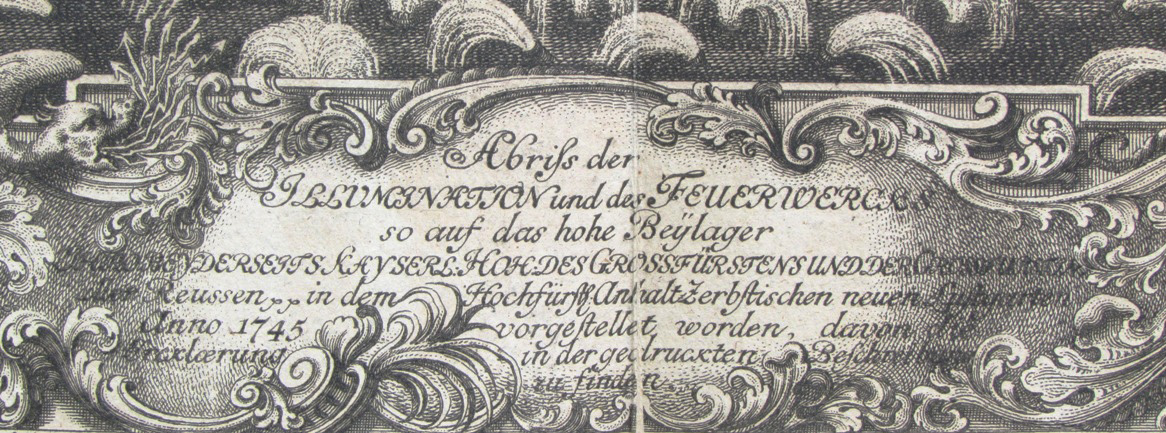 Abriſs der
ILLUMINATION und des FEUERWERCKES
so auf das hohe Beÿlager
KAYSERL. HOH. DES GROSSFÜRSTENS UND DER
Reussen,, in dem Hochfürſtl. Anhalt Zerbſtischen neuen Luſtgarten
Anno 1745 vorgeſtellet worden, davon die
Erklærung in der gedruckten Beſchreibung
zu finden.